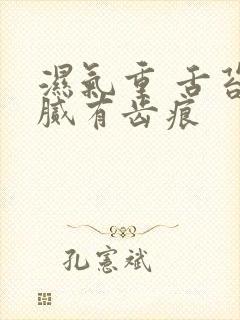 濕氣重 舌苔
膩有齒痕
孔憲斌